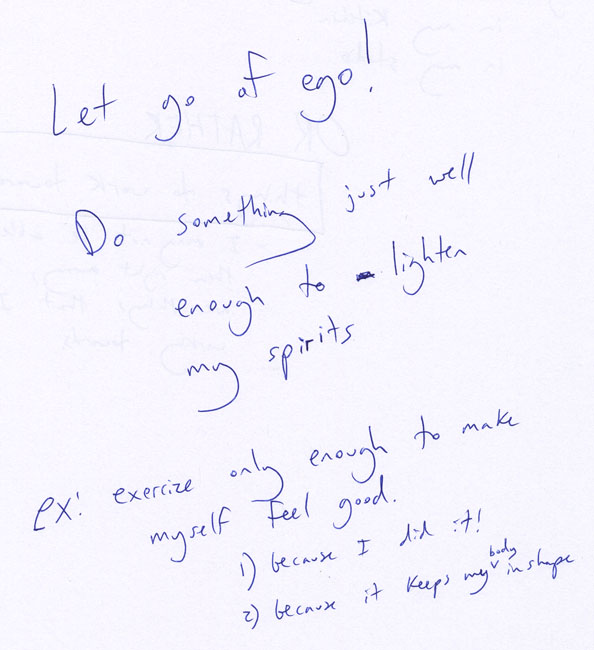 Let go of ego!
Do something just well
enough to lighten
my spirits
ex: exercize only enough to make
myself feel good.
1) because I did it!
2) because it keeps my body in shape